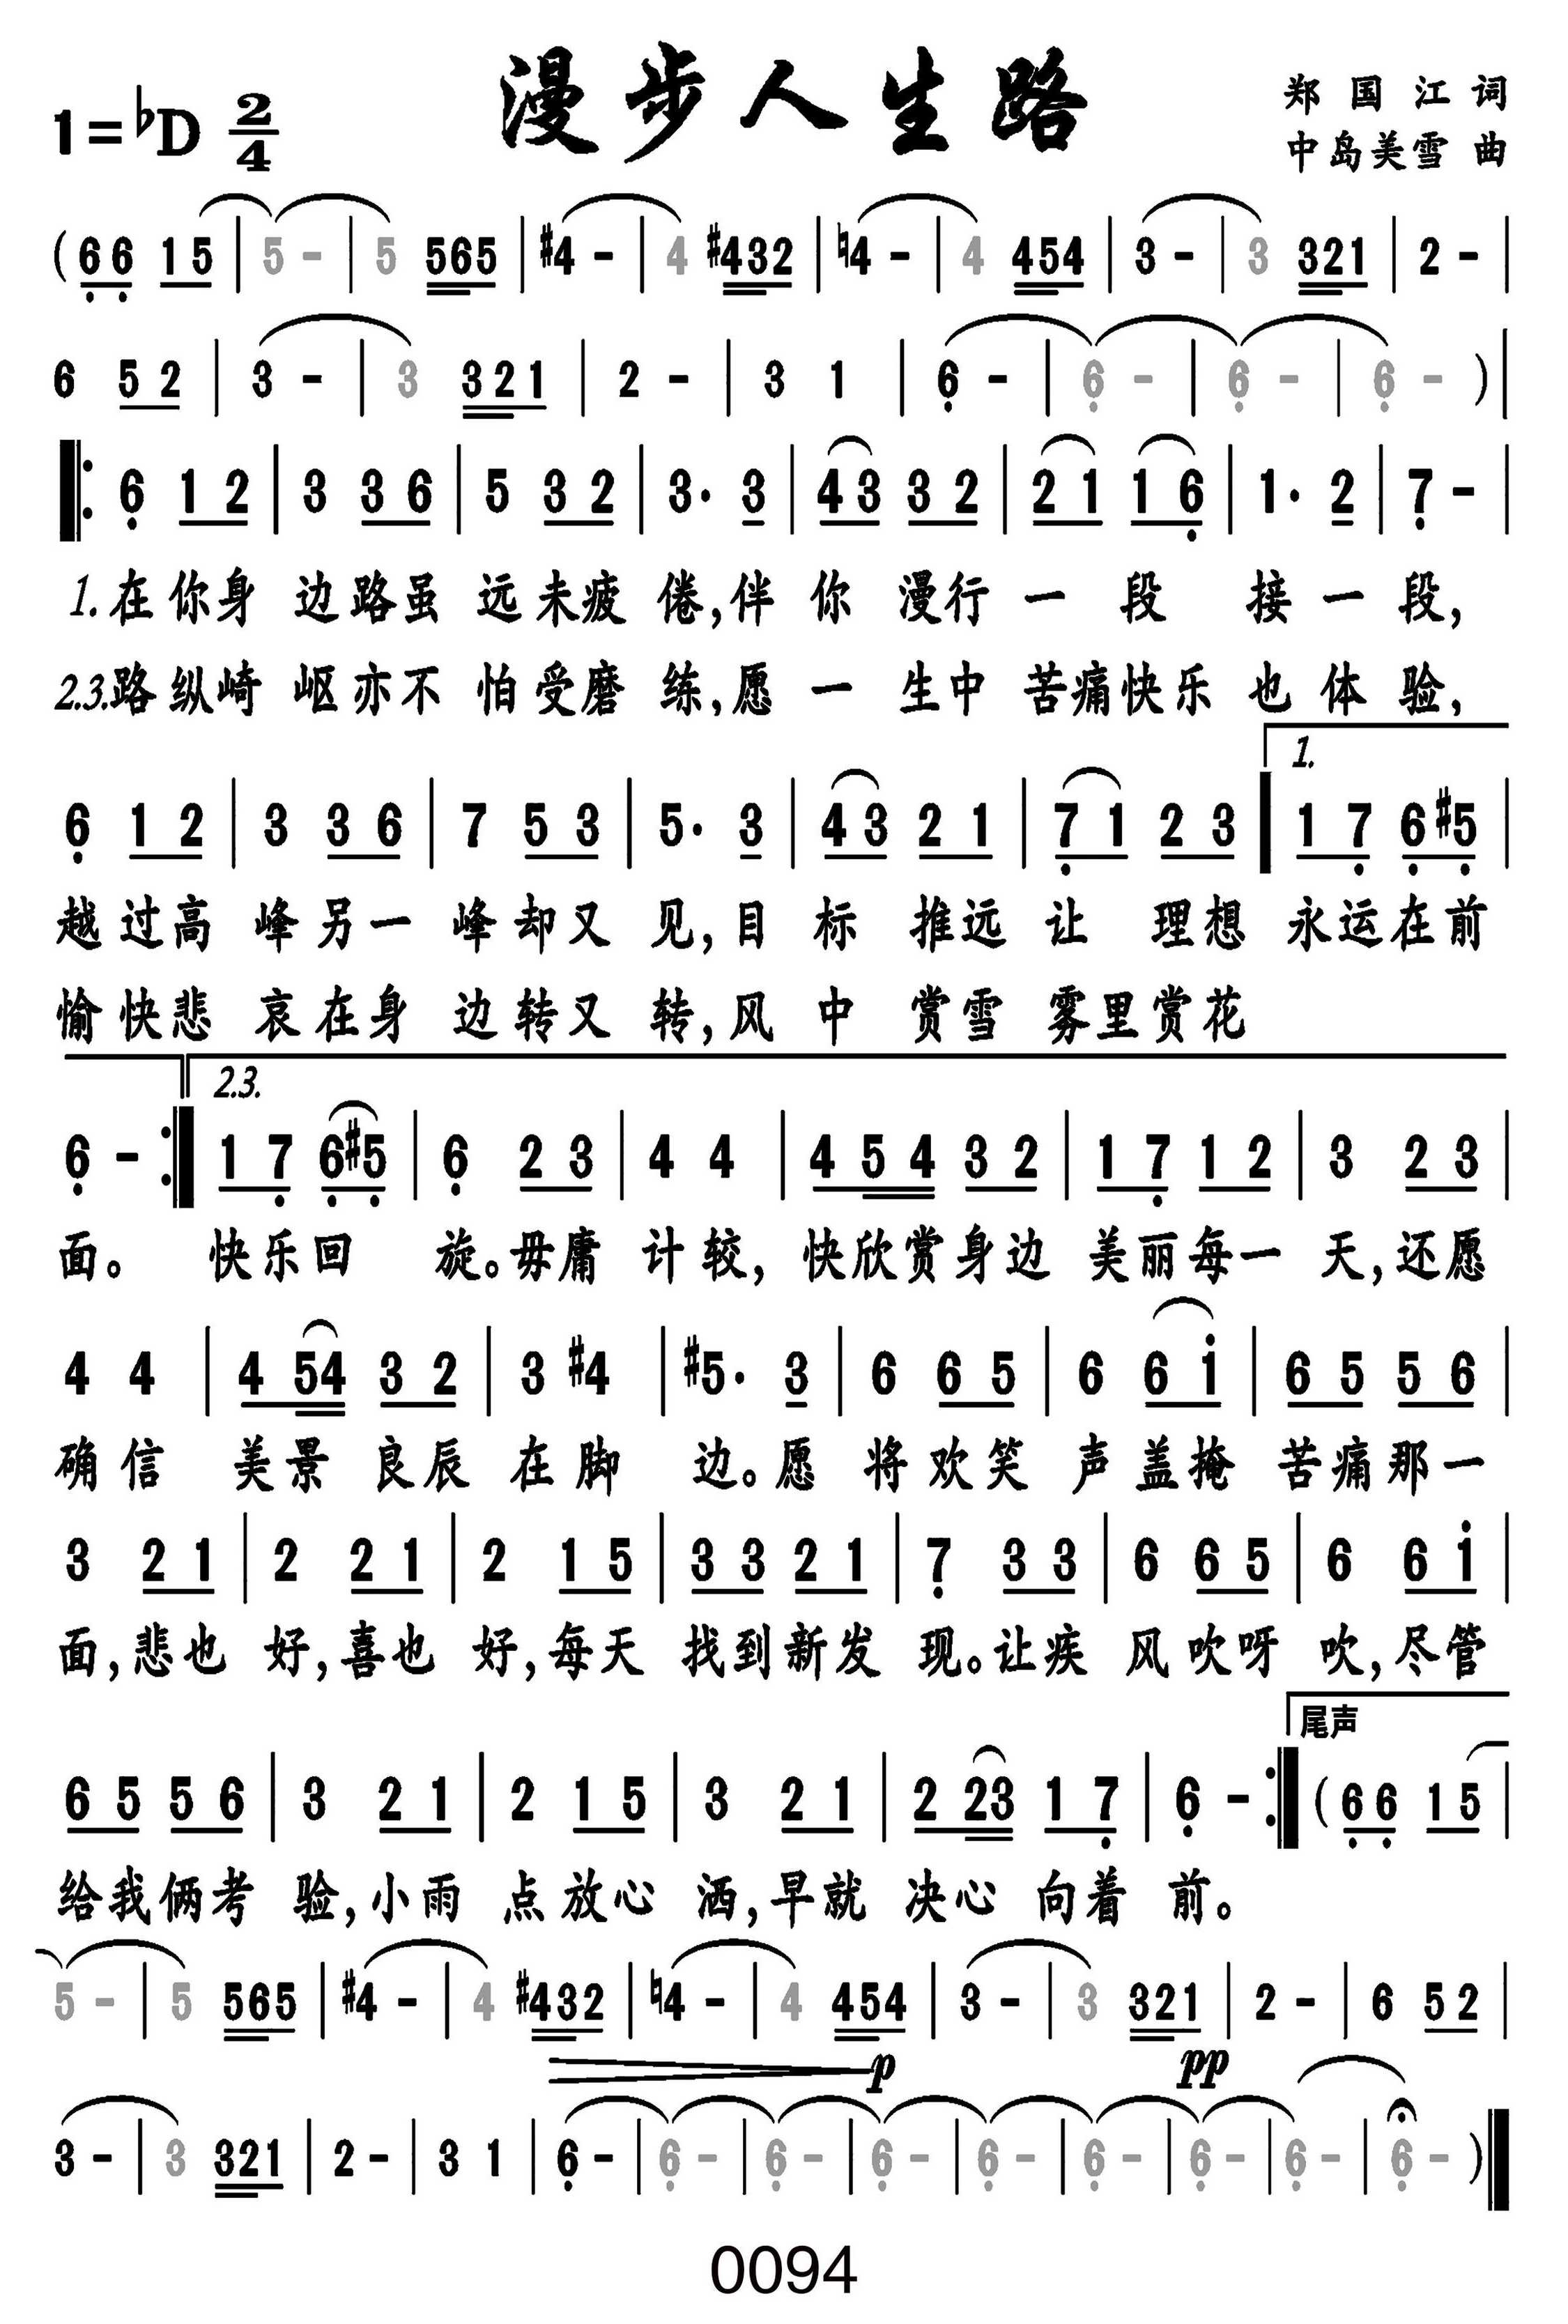 漫步人生路
1=♭D 2/4
郑国江 词
中岛美雪 曲
(66 15 | 5 - | 5 565 | #4 - | 4 #432 | ♮4 - | 4 454 | 3 - | 3 321 | 2 - |
6 52 | 3 - | 3 321 | 2 - | 3 1 | 6 - | 6 - | 6 - | 6 - )|
‖: 6 12 | 3 36 | 5 32 | 3· 3 | 43 32 | 21 16 | 1· 2 | 7 - |
1.在你身 边路虽 远未疲 倦,伴 你 漫行 一 段 接 一 段,
2.3.路纵崎 岖亦不 怕受磨 练,愿 一 生中 苦痛快乐 也 体 验,
1.
6 12 | 3 36 | 7 53 | 5· 3 | 43 21 | 71 23 | 17 6#5 |
越过高 峰另一 峰却又 见,目 标 推远 让 理想 永运在前
愉快悲 哀在身 边转又 转,风 中 赏雪 雾里赏花
2.3.
6 - :‖ 17 6#5 | 6 23 | 4 4 | 454 32 | 17 12 | 3 23 |
面。 快乐回 旋。毋庸 计较, 快欣赏身边 美丽每一 天,还愿
4 4 | 454 32 | 3 #4 | #5· 3 | 6 65 | 6 6i | 65 56 |
确信 美景 良辰 在脚 边。愿 将欢笑 声盖掩 苦痛那一
3 21 | 2 21 | 2 15 | 33 21 | 7 33 | 6 65 | 6 6i |
面,悲也 好,喜也 好,每天 找到新发 现。让疾 风吹呀 吹,尽管
尾声
65 56 | 3 21 | 2 15 | 3 21 | 223 17 | 6 - :‖ (66 15 |
给我俩考 验,小雨 点放心 洒,早就 决心 向着 前。
5 - | 5 565 | #4 - | 4 #432 | ♮4 - | 4 454 | 3 - | 3 321 | 2 - | 6 52 |
p pp
3 - | 3 321 | 2 - | 3 1 | 6 - | 6 - | 6 - | 6 - | 6 - | 6 - | 6 - | 6 - | 6 - )‖
0094